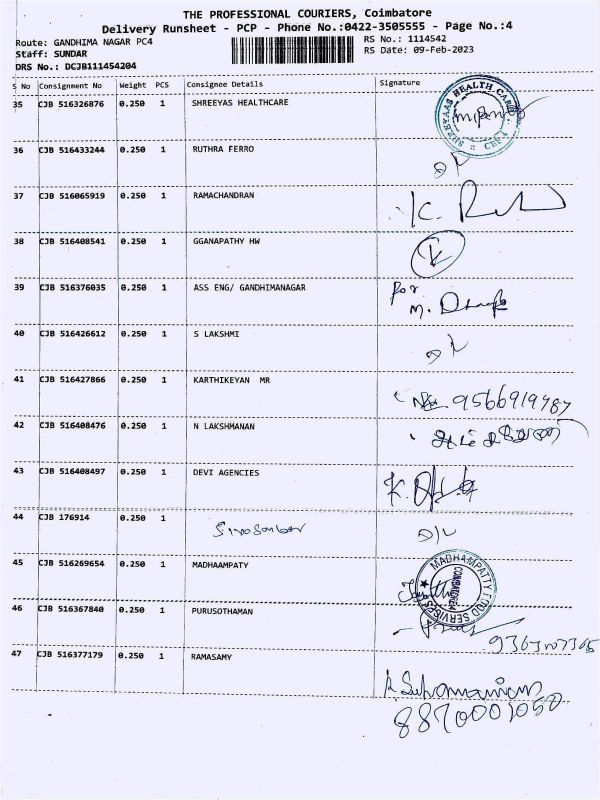 THE PROFESSIONAL COURIERS, Coimbatore
Delivery Runsheet - PCP - Phone No.:0422-3505555 - Page No.:4
Route: GANDHIMA NAGAR PC4
RS No.: 1114542
Staff: SUNDAR
RS Date: 09-Feb-2023
DRS No.: DCJB111454204
S No Consignment No Weight PCS Consignee Details Signature
35 CJB 516326876 0.250 1 SHREEYAS HEALTHCARE
SHREYAAS HEALTH CARE CBE-4
36 CJB 516433244 0.250 1 RUTHRA FERRO
37 CJB 516065919 0.250 1 RAMACHANDRAN
K.
38 CJB 516408541 0.250 1 GGANAPATHY HW
39 CJB 516376035 0.250 1 ASS ENG/ GANDHIMANAGAR
for
M.
40 CJB 516426612 0.250 1 S LAKSHMI
41 CJB 516427866 0.250 1 KARTHIKEYAN MR
9566919787
42 CJB 516408476 0.250 1 N LAKSHMANAN
43 CJB 516408497 0.250 1 DEVI AGENCIES
K.
44 CJB 176914 0.250 1
D/L
45 CJB 516269654 0.250 1 MADHAAMPATY
MADHAMPATTY FOOD SERVISES COIMBATORE-4
46 CJB 516367840 0.250 1 PURUSOTHAMAN
47 CJB 516377179 0.250 1 RAMASAMY
8870001050